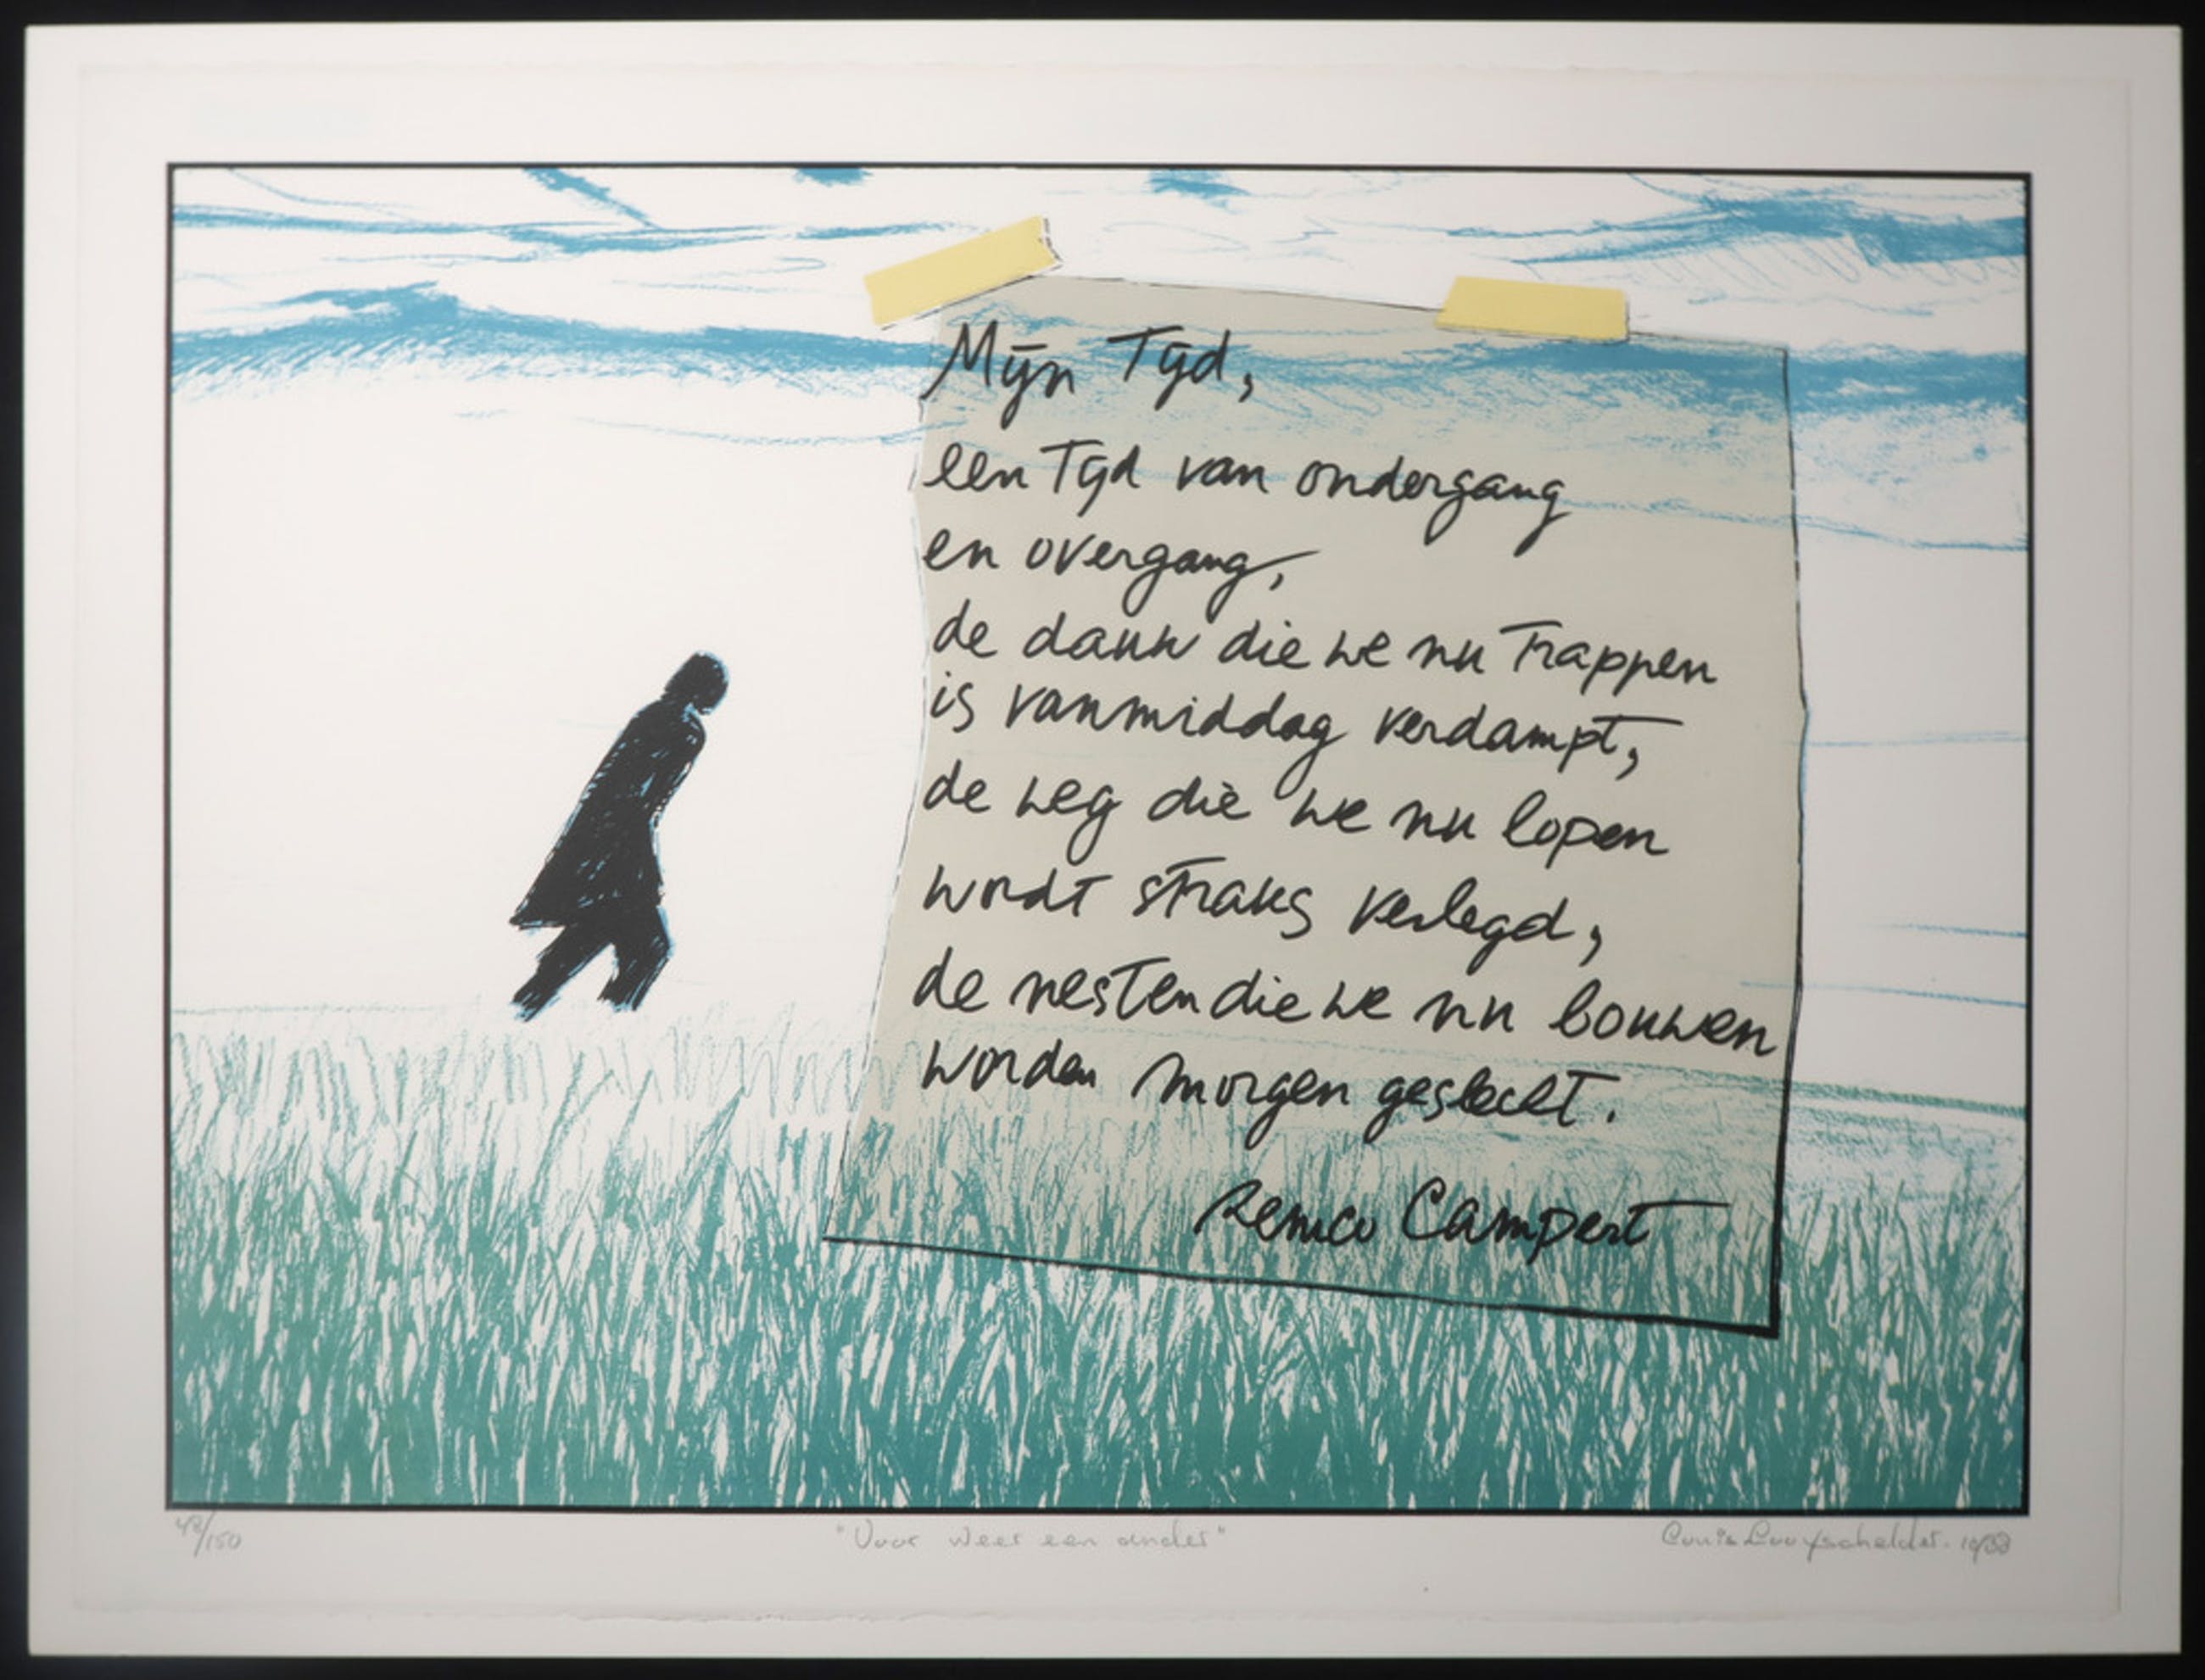 Mijn Tijd,
een Tijd van ondergang
en overgang,
de dauw die we nu Trappen
is vanmiddag verdampt,
de weg die we nu lopen
wordt straks verlegd,
de nesten die we nu bouwen
worden morgen geslecht.
Remco Campert
48/150
"Voor weer een ander"